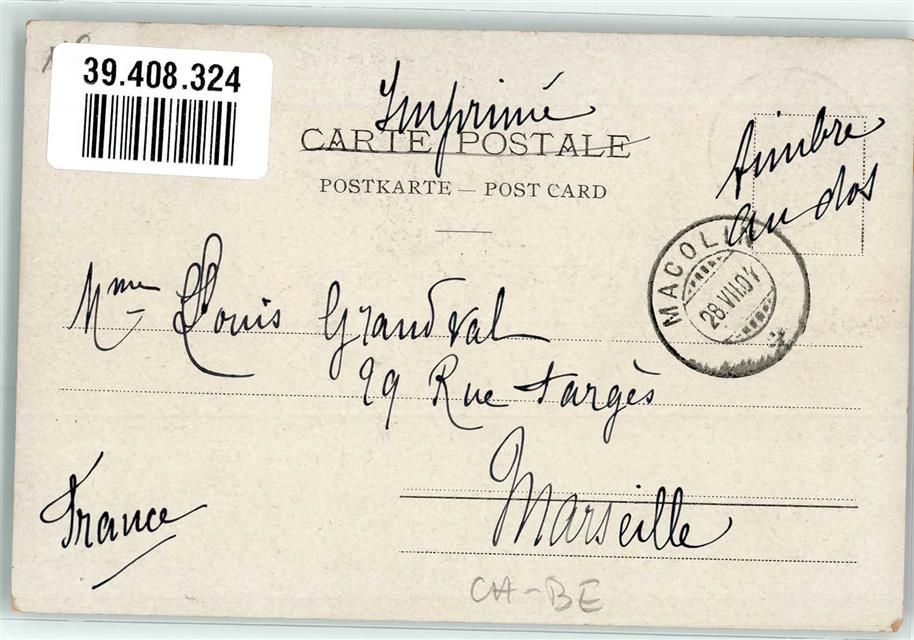 39.408.324
Imprimé
CARTE POSTALE
POSTKARTE — POST CARD
Timbre
au dos
MACOLIN
28.VII.04
Mme Louis Grandval
99 Rue Fargès
Marseille
France
CH-BE